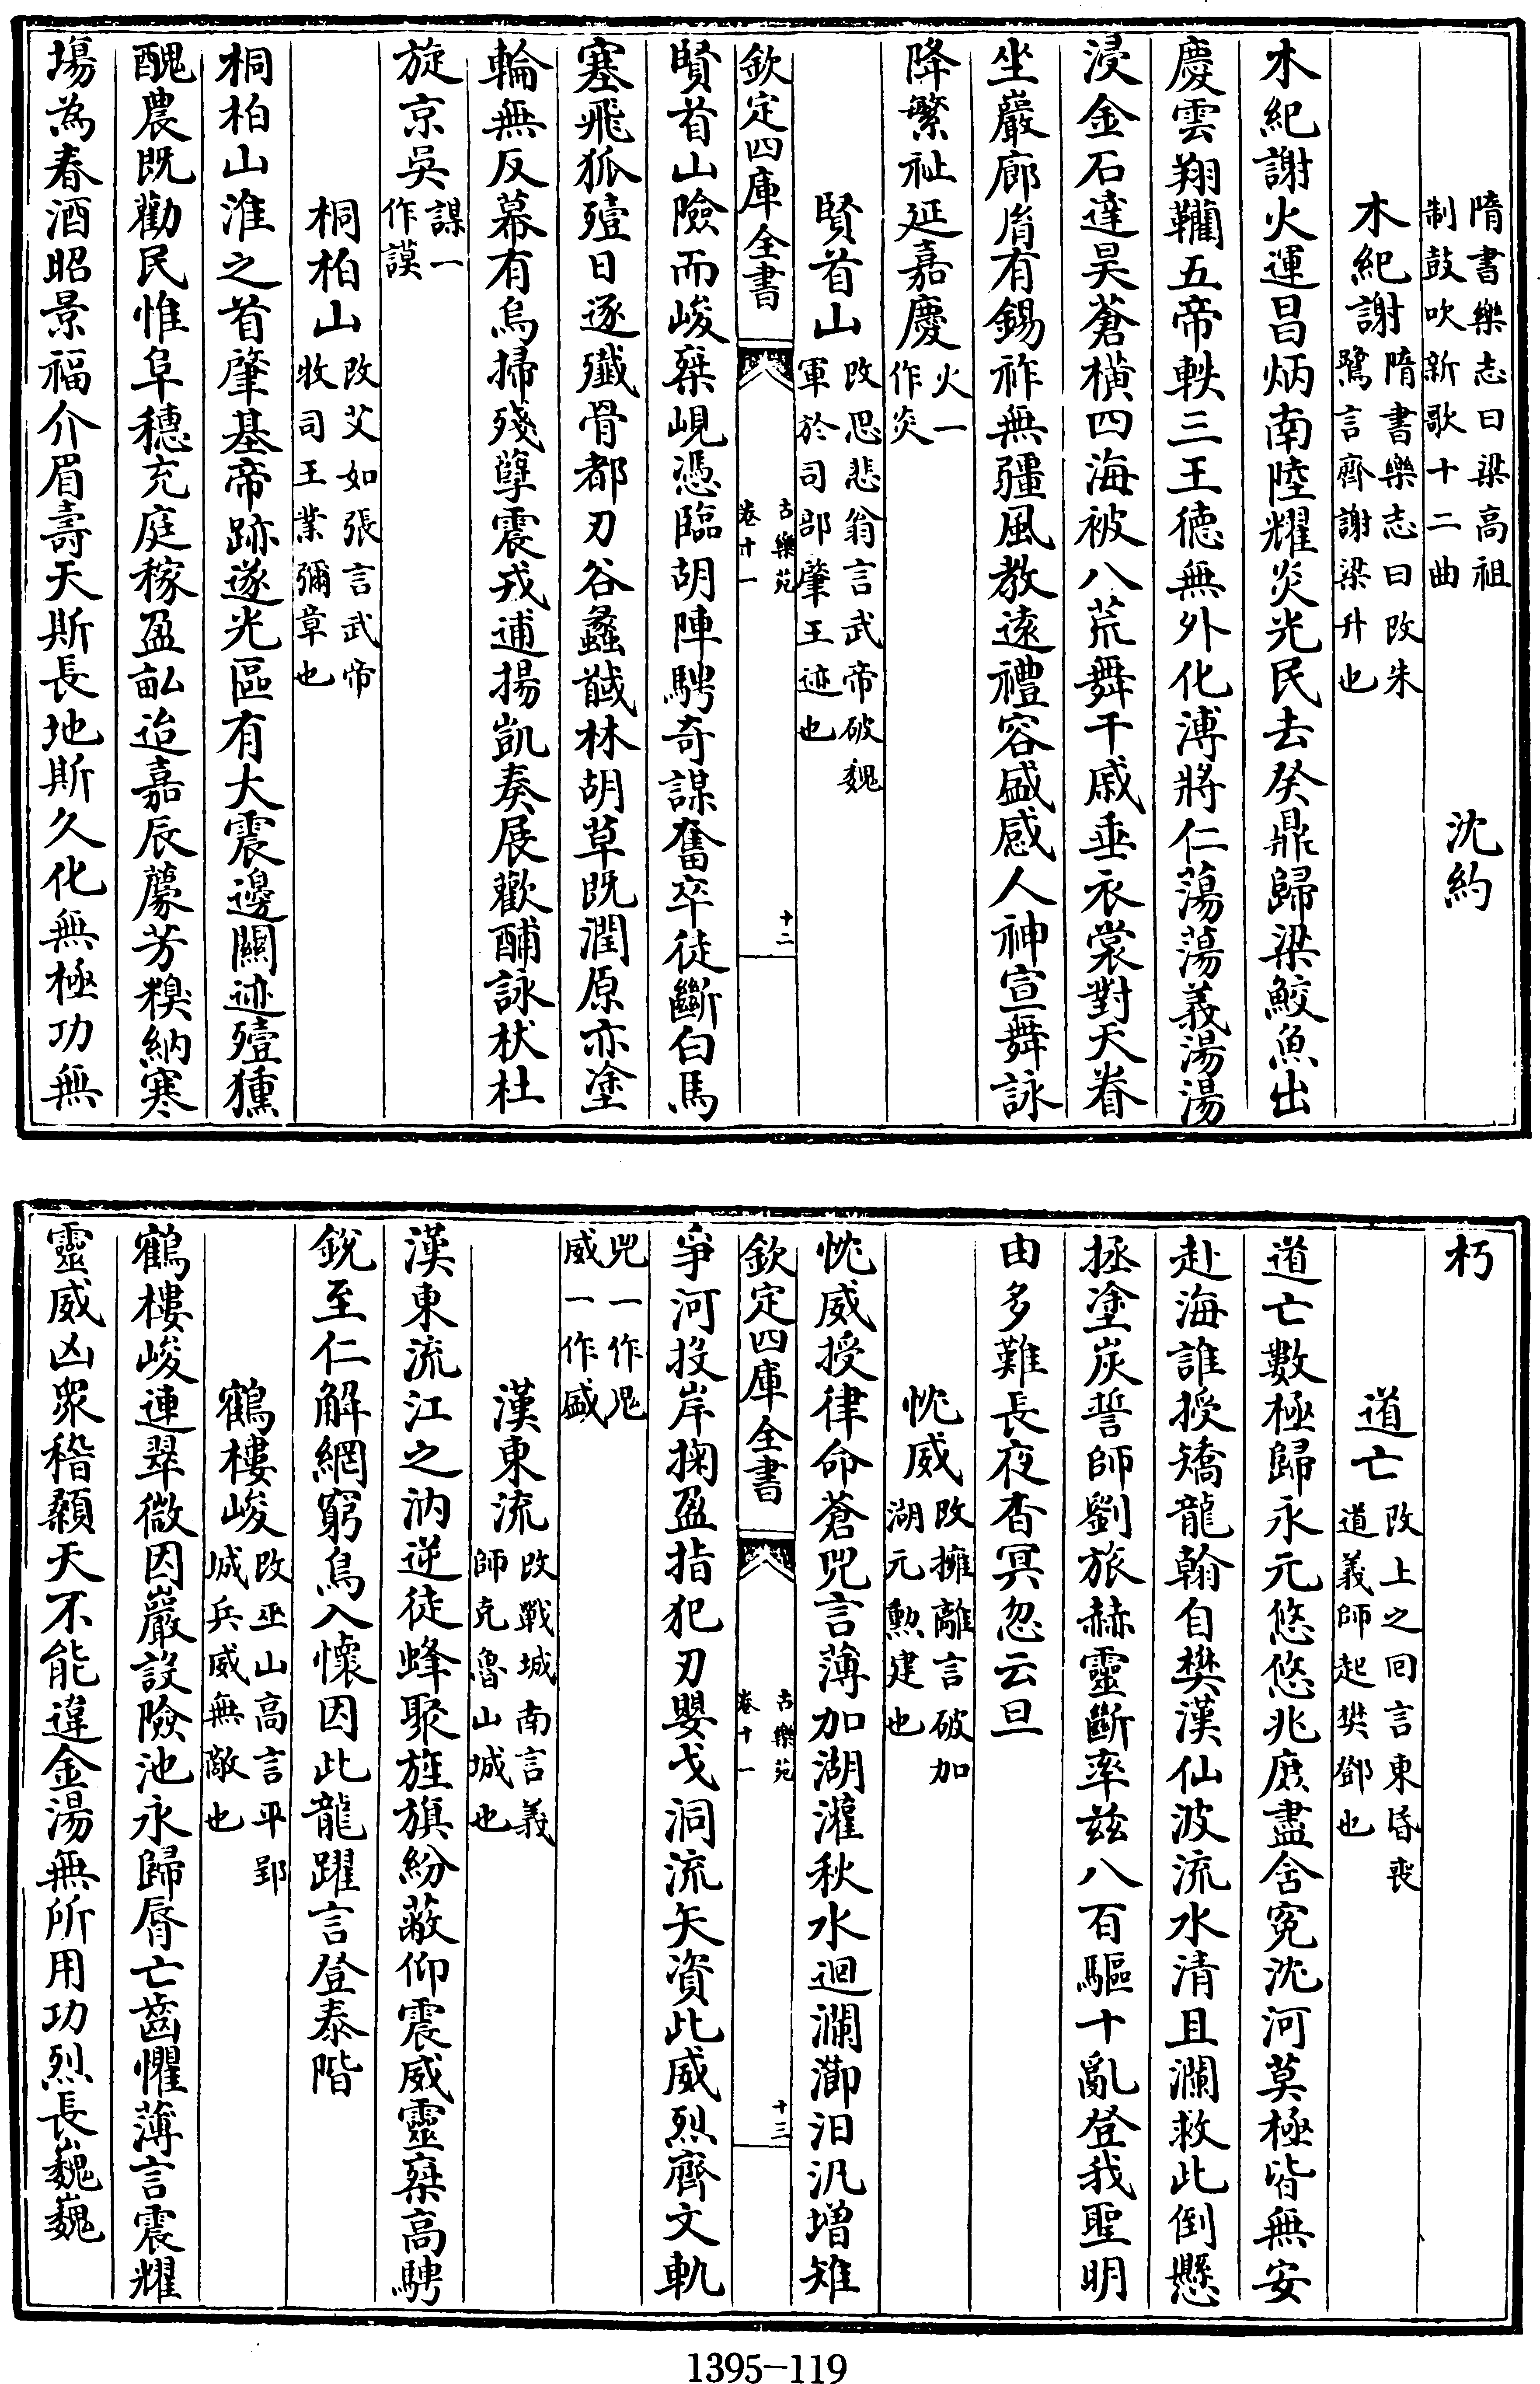 隋書樂志曰梁高祖
制鼓吹新歌十二曲
沈約
木紀謝
隋書樂志曰改朱
鷺言齊謝梁升也
木紀謝火運昌炳南陸耀炎光民去癸鼎歸梁鮫魚出
慶雲翔韊五帝軼三王德無外化溥將仁蕩蕩義湯湯
浸金石達昊蒼橫四海被八荒舞干戚垂衣裳對天眷
坐巖廊胤有錫祚無疆風教遠禮容盛感人神宣舞詠
降繁祉延嘉慶
火一
作炎
賢首山
改思悲翁言武帝破魏
軍於司部肇王迹也
欽定四庫全書
古樂苑
卷十一
十二
賢首山險而峻乗峴憑臨胡陣騁奇謀奮卒徒斷白馬
塞飛狐殪日逐殱骨都刃谷蠡馘林胡草既潤原亦塗
輪無反幕有烏掃殘孽震戎逋揚凱奏展歡酺詠杕杜
旋京吳
謀一
作謨
桐柏山
改艾如張言武帝
牧司王業彌章也
桐柏山淮之首肇基帝跡遂光區有大震邊關迹殪獯
醜農既勸民惟阜穗充庭稼盈畝迨嘉辰蘪芳糗納寒
場為春酒昭景福介眉壽天斯長地斯久化無極功無
朽
道亡
改上之回言東昏喪
道義師起樊鄧也
道亡數極歸永元悠悠兆庶盡含寃沈河莫極皆無安
赴海誰授矯龍翰自樊漢仙波流水清且瀾救此倒懸
拯塗炭誓師劉旅赫靈斷率兹八百驅十亂登我聖明
由多難長夜杳冥忽云旦
忱威
改擁離言破加
湖元勲建也
忱威授律命蒼兕言薄加湖灌秋水迴瀾瀄汨汎增雉
欽定四庫全書
古樂苑
卷十一
十三
爭河投岸掬盈指犯刃嬰戈洞流矢資此威烈齊文軌
兕一作兕
威一作盛
漢東流
改戰城南言義
師克魯山城也
漢東流江之汭逆徒蜂聚旌旗紛蔽仰震威靈乗高騁
鋭至仁解網窮鳥入懷因此龍躍言登泰階
鶴樓峻
改巫山高言平郢
城兵威無敵也
鶴樓峻連翠微因巖設險池永歸脣亡齒懼薄言震耀
靈威凶衆稽顙天不能違金湯無所用功烈長巍巍
1395-119